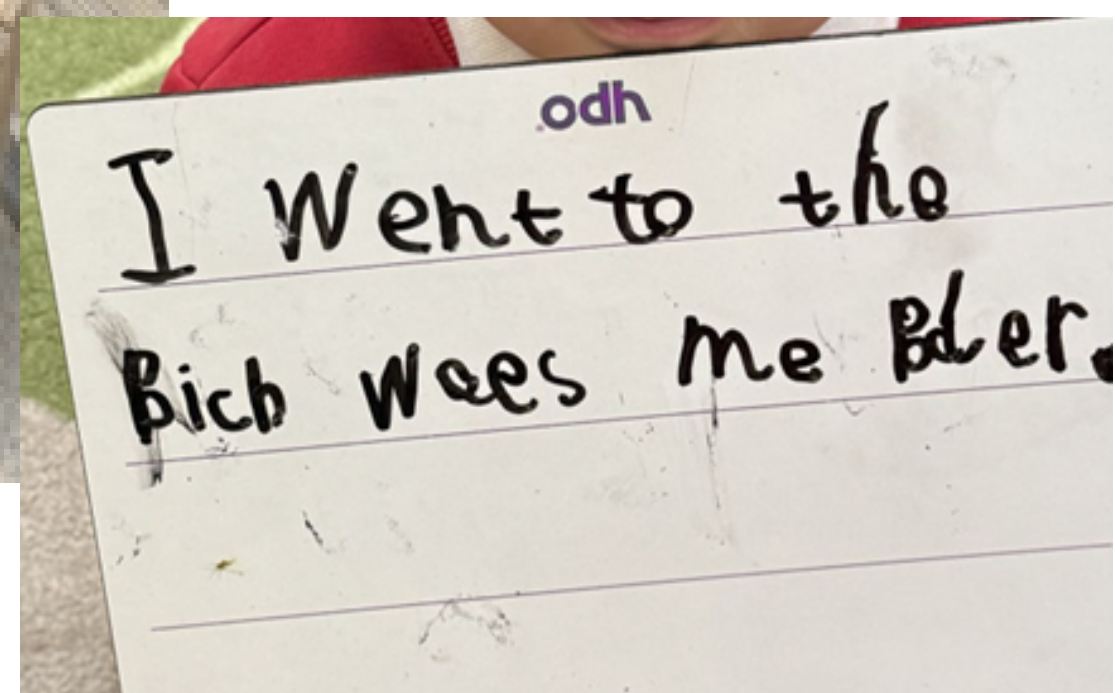 odh
I Went to the
Bich waes me Bder.